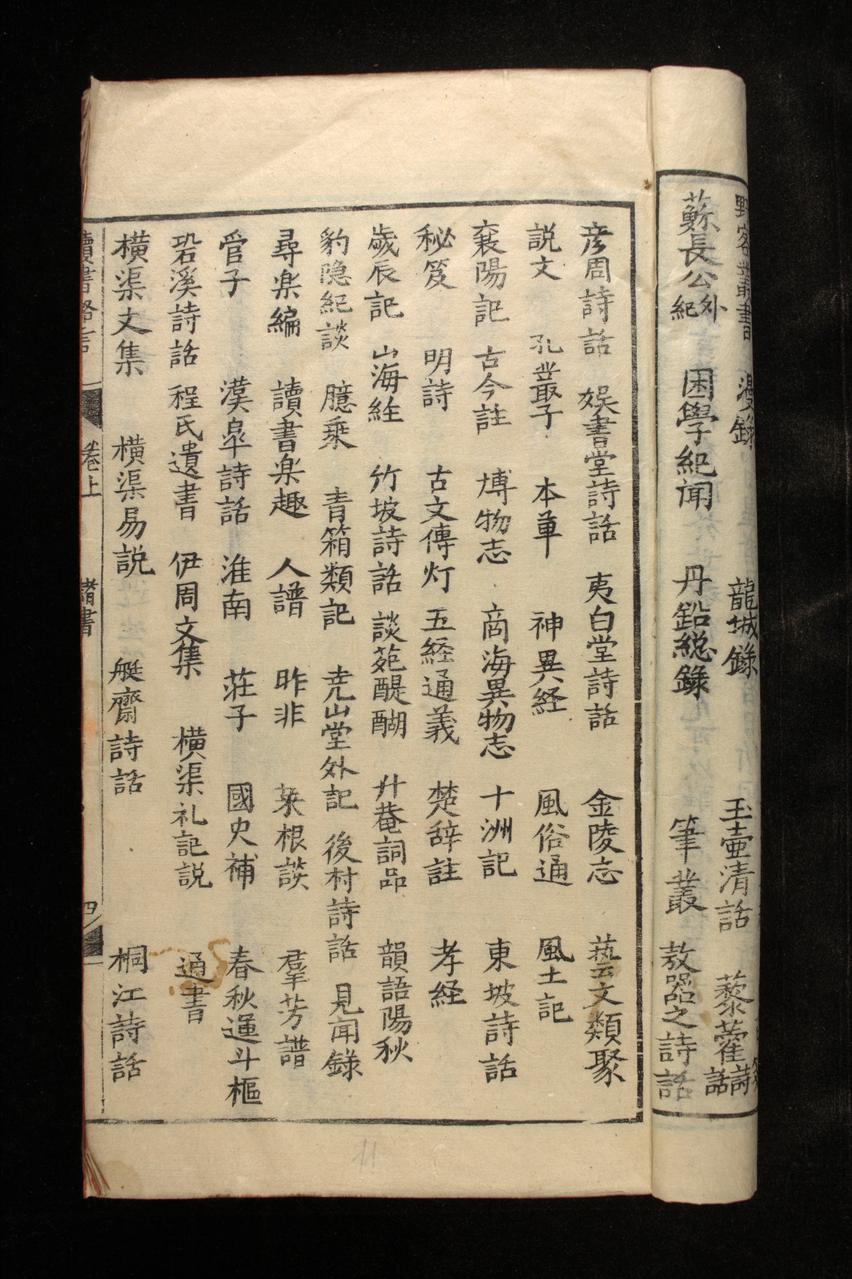 野客叢書 漫錄 龍城錄 玉壺清話 藜藿詩話
蘇長公外紀 困學紀聞 丹鉛総錄 筆叢 敖器之詩話
彦周詩話 娯書堂詩話 夷白堂詩話 金陵志 藝文類聚
説文 孔叢子 本草 神異経 風俗通 風土記
襄陽記 古今註 博物志 商海異物志 十洲記 東坡詩話
秘笈 明詩 古文傳灯 五経通義 楚辞註 孝経
歳辰記 山海経 竹坡詩話 談苑醍醐 廾菴詞品 韻語陽秋
豹隠紀談 臆乘 青箱類記 尭山堂外記 後村詩話 見聞錄
尋楽編 讀書楽趣 人譜 昨非 菜根談 羣芳譜
管子 漢皐詩話 淮南 荘子 國史補 春秋運斗樞
䂬溪詩話 程氏遺書 伊周文集 横渠礼記説 通書
横渠文集 横渠易説 艇齋詩話 桐江詩話
讀書 卷上 諸書 四
11